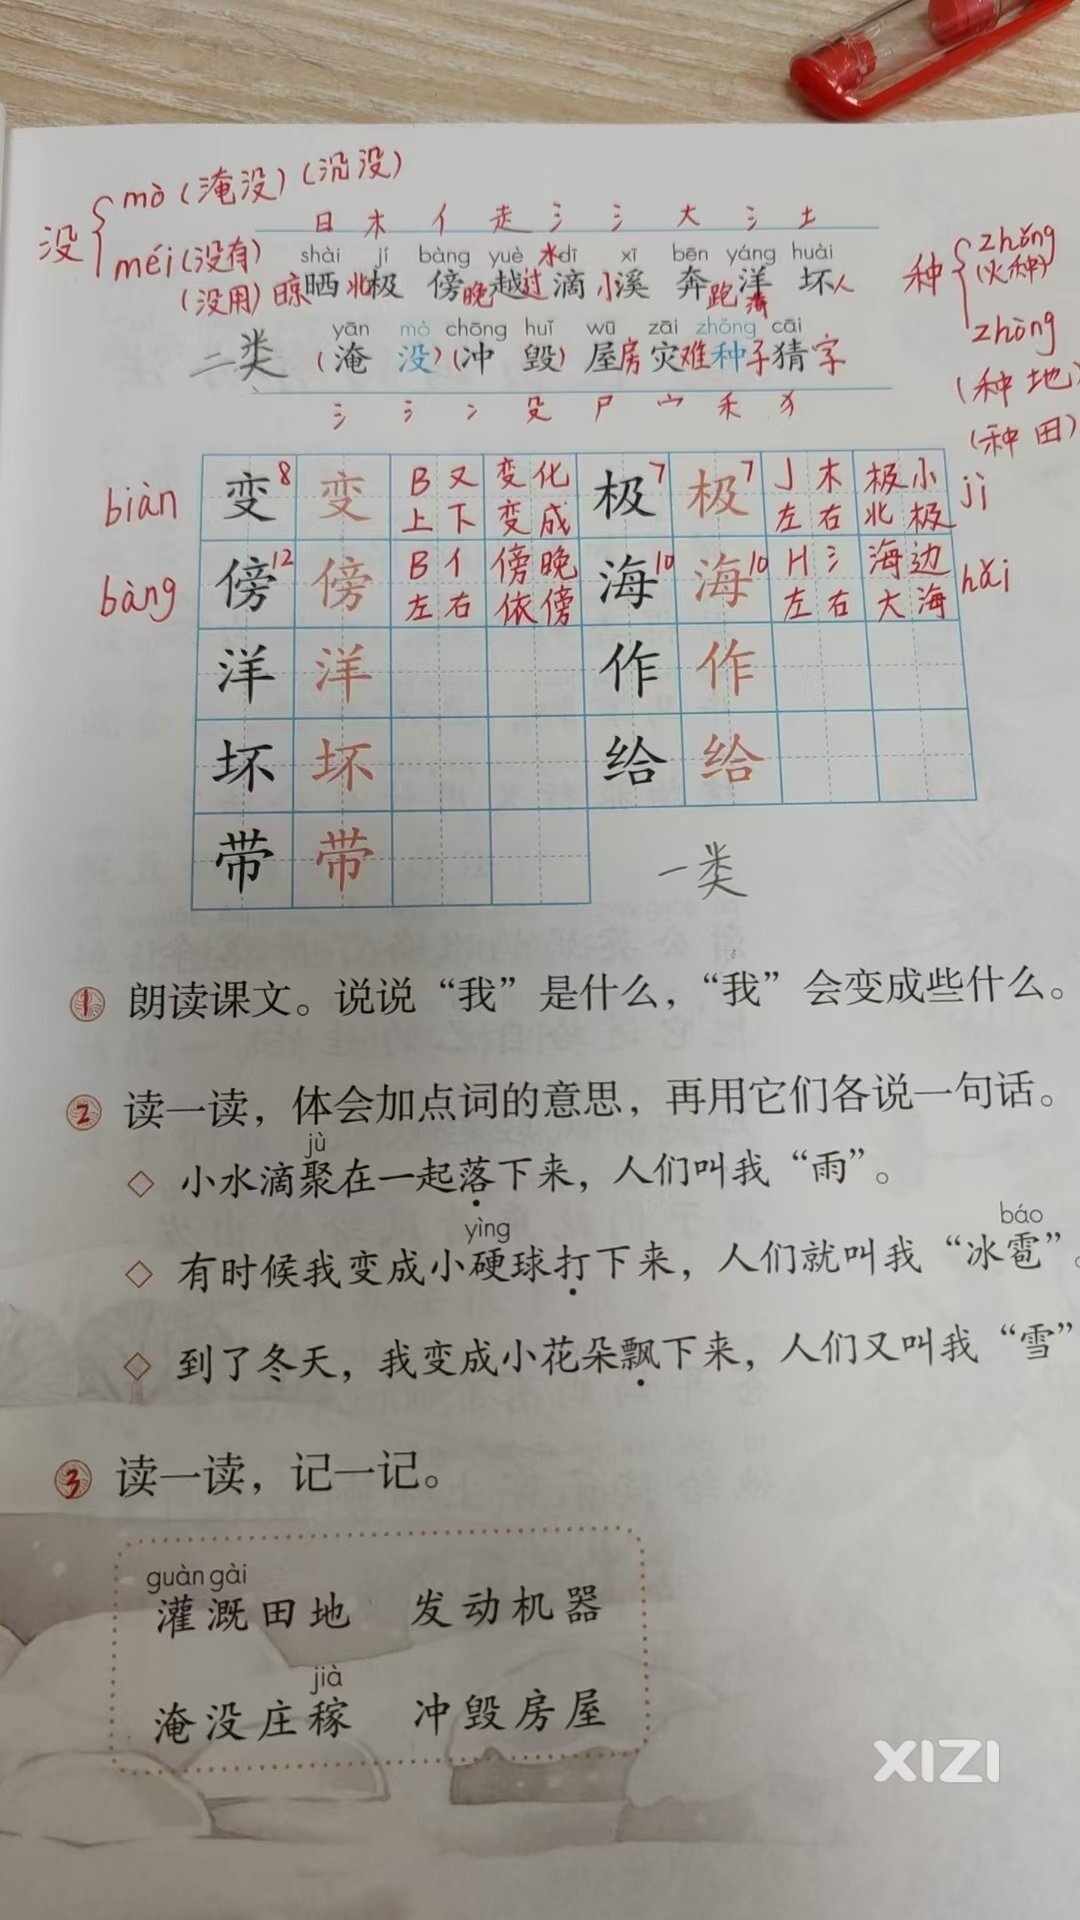 没 mò (淹没) (沉没)
méi (没有)
(没用)
日 木 亻 走 氵 氵 大 氵 土
shài jí bàng yuè dī xī bēn yáng huài
晾晒 北极 傍晚 越过 水滴 小溪 奔跑 海洋 坏人
种 zhǒng
(火种)
zhòng
(种地)
(种田)
yān mò chōng huǐ wū zāi zhǒng cāi
二类 (淹没) (冲毁) 屋房 灾难 种子 猜字
氵 氵 冫 殳 尸 宀 禾 犭
biàn 变8 变 B 又 变化 极7 极7 J 木 极小 jí
上下 变成 左右 北极
bàng 傍12 傍 B 亻 傍晚 海10 海10 H 氵 海边 hǎi
左右 依傍 左右 大海
洋 洋 作 作
坏 坏 给 给
带 带 一类
1 朗读课文。说说“我”是什么,“我”会变成些什么。
2 读一读,体会加点词的意思,再用它们各说一句话。
jù
◇ 小水滴聚在一起落下来,人们叫我“雨”。
yìng báo
◇ 有时候我变成小硬球打下来,人们就叫我“冰雹”。
◇ 到了冬天,我变成小花朵飘下来,人们又叫我“雪”
3 读一读,记一记。
guàn gài
灌溉田地 发动机器
jià
淹没庄稼 冲毁房屋
XIZI